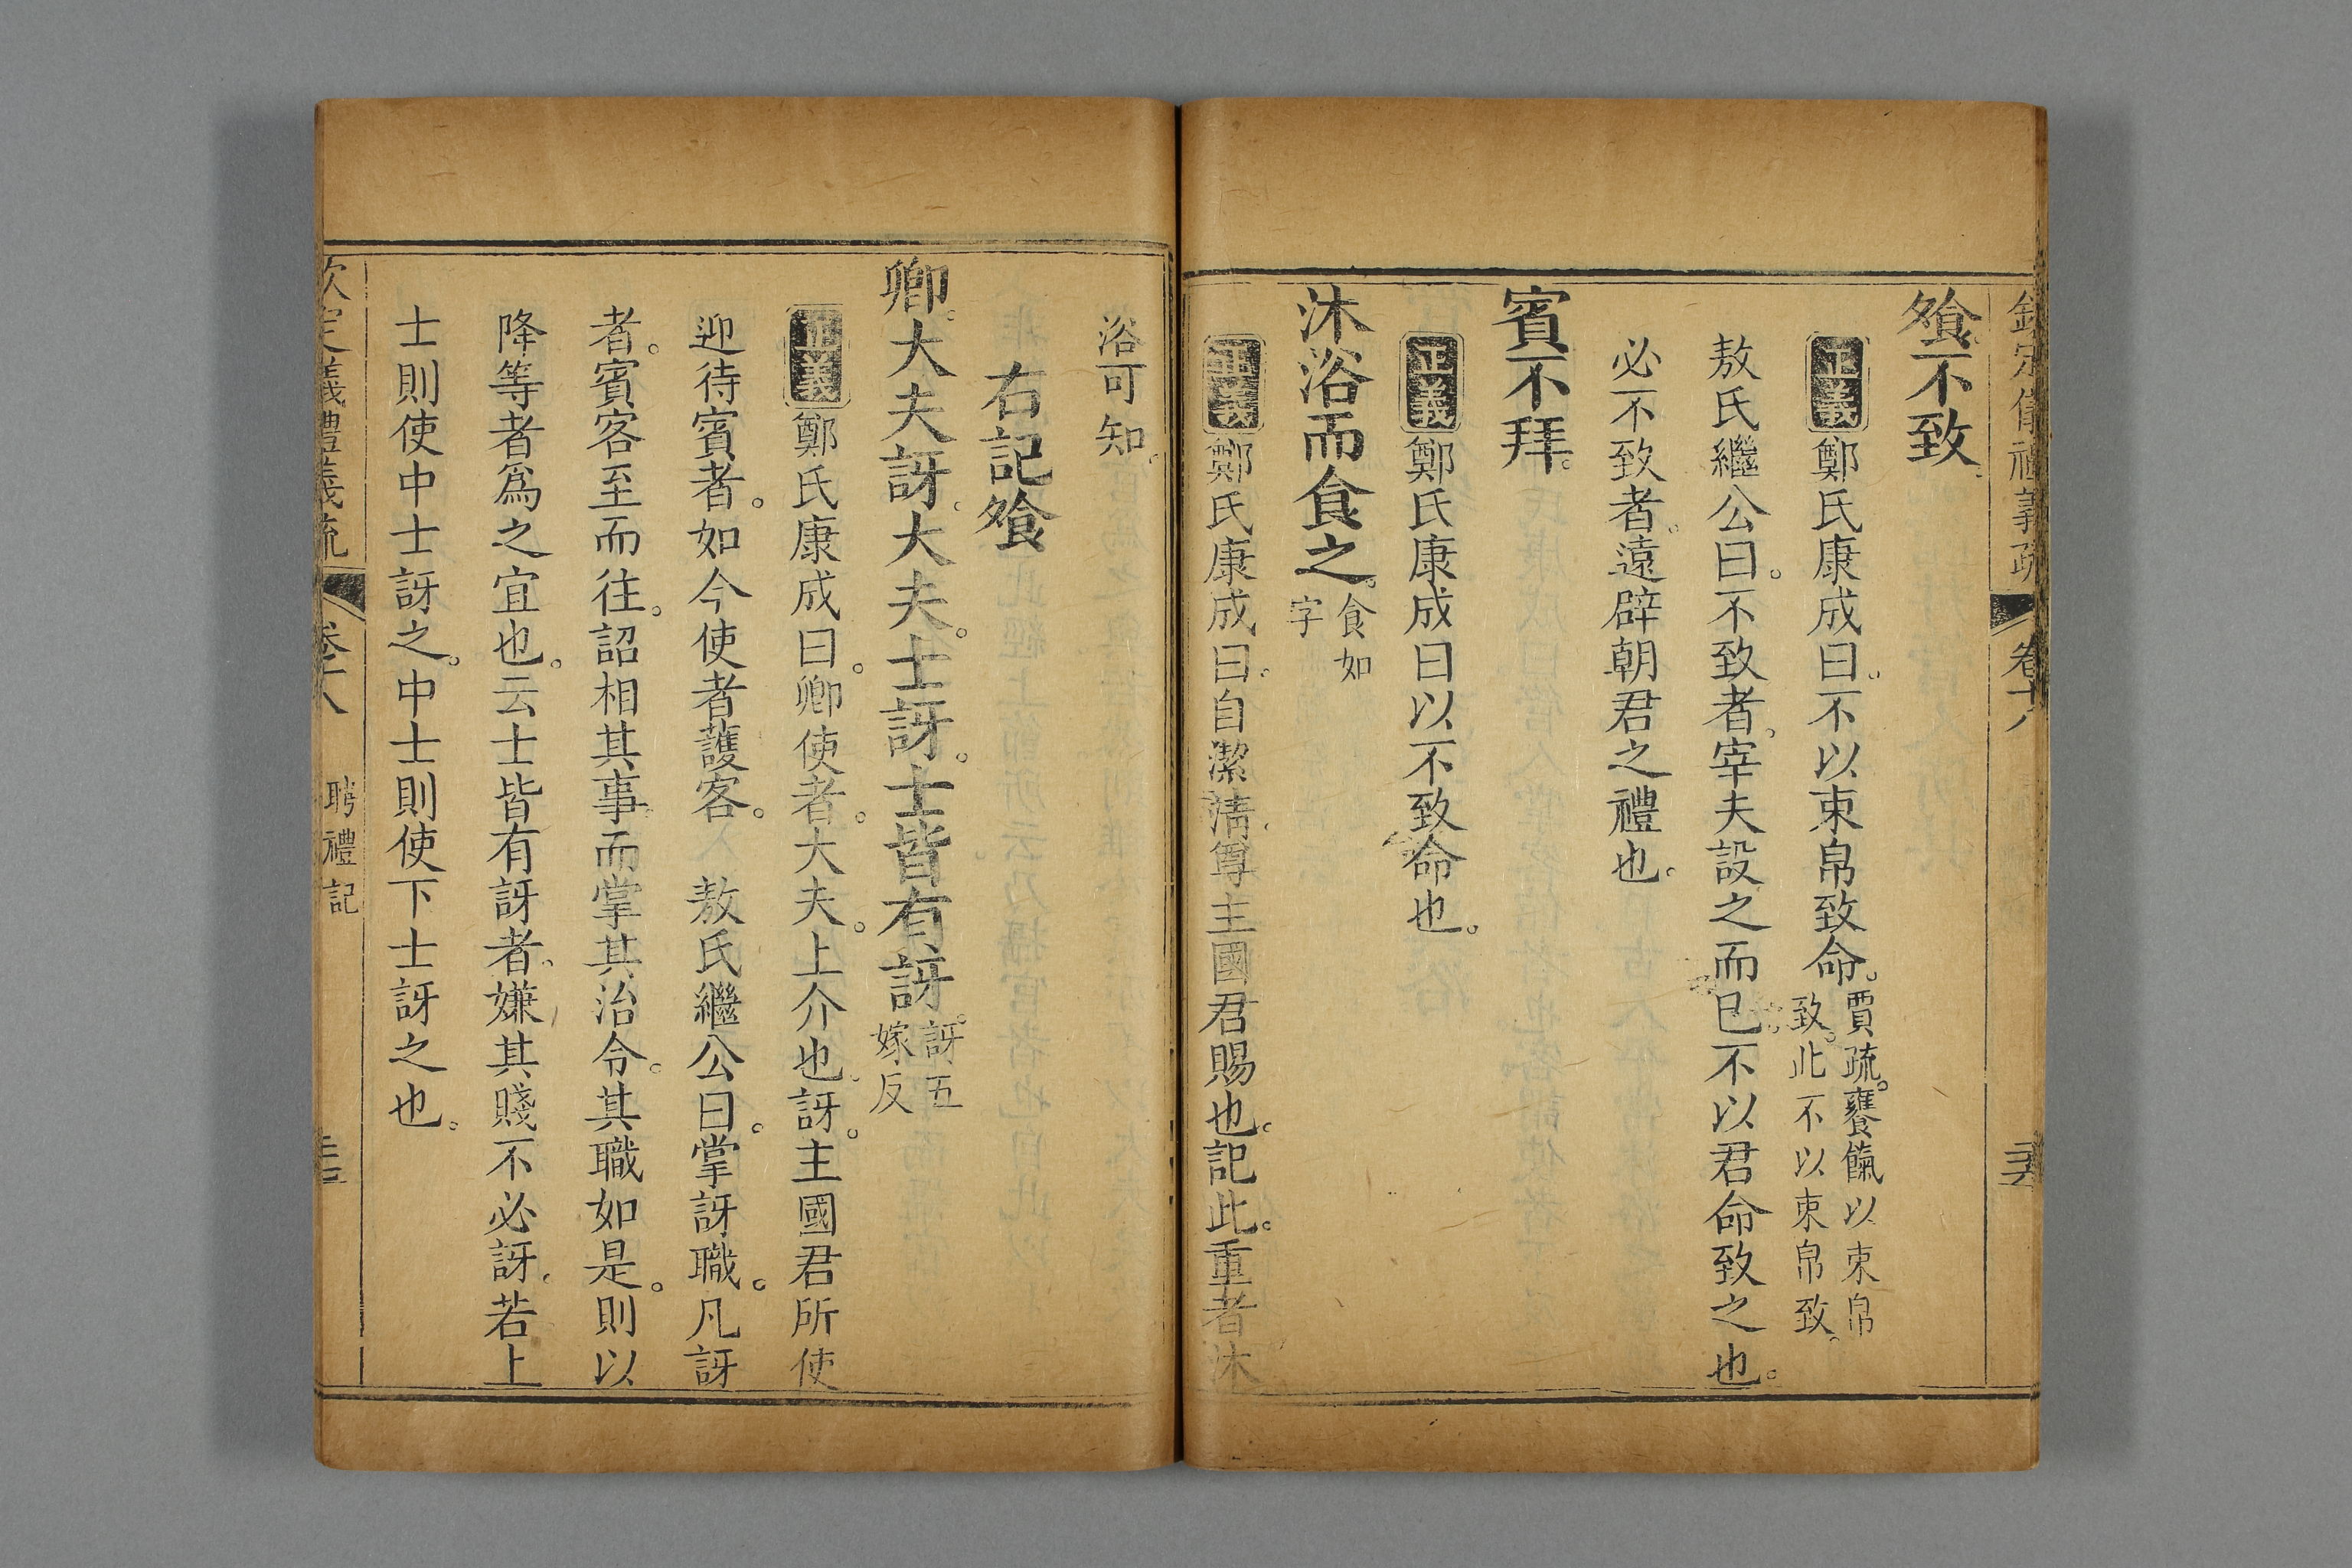 欽定儀禮義疏 卷十八
飧不致。
正義鄭氏康成曰。不以束帛致命。賈疏。饔餼以束帛致。此不以束帛致。
敖氏繼公曰。不致者。宰夫設之而已。不以君命致之也。
必不致者。遠辟朝君之禮也。
賓不拜。
正義鄭氏康成曰以不致命也。
沐浴而食之。食如字
正義鄭氏康成曰。自潔清。尊主國君賜也。記此。重者沐
浴可知。
右記飧
卿。大夫訝。大夫。士訝。士皆有訝。訝五嫁反
正義鄭氏康成曰。卿使者。大夫。上介也。訝。主國君所使
迎待賓者。如今使者護客。 敖氏繼公曰。掌訝職。凡訝
者。賓客至而往。詔相其事。而掌其治令。其職如是。則以
降等者爲之宜也。云士皆有訝者。嫌其賤不必訝。若上
士則使中士訝之。中士則使下士訝之也。
欽定儀禮義疏 卷十八 聘禮記